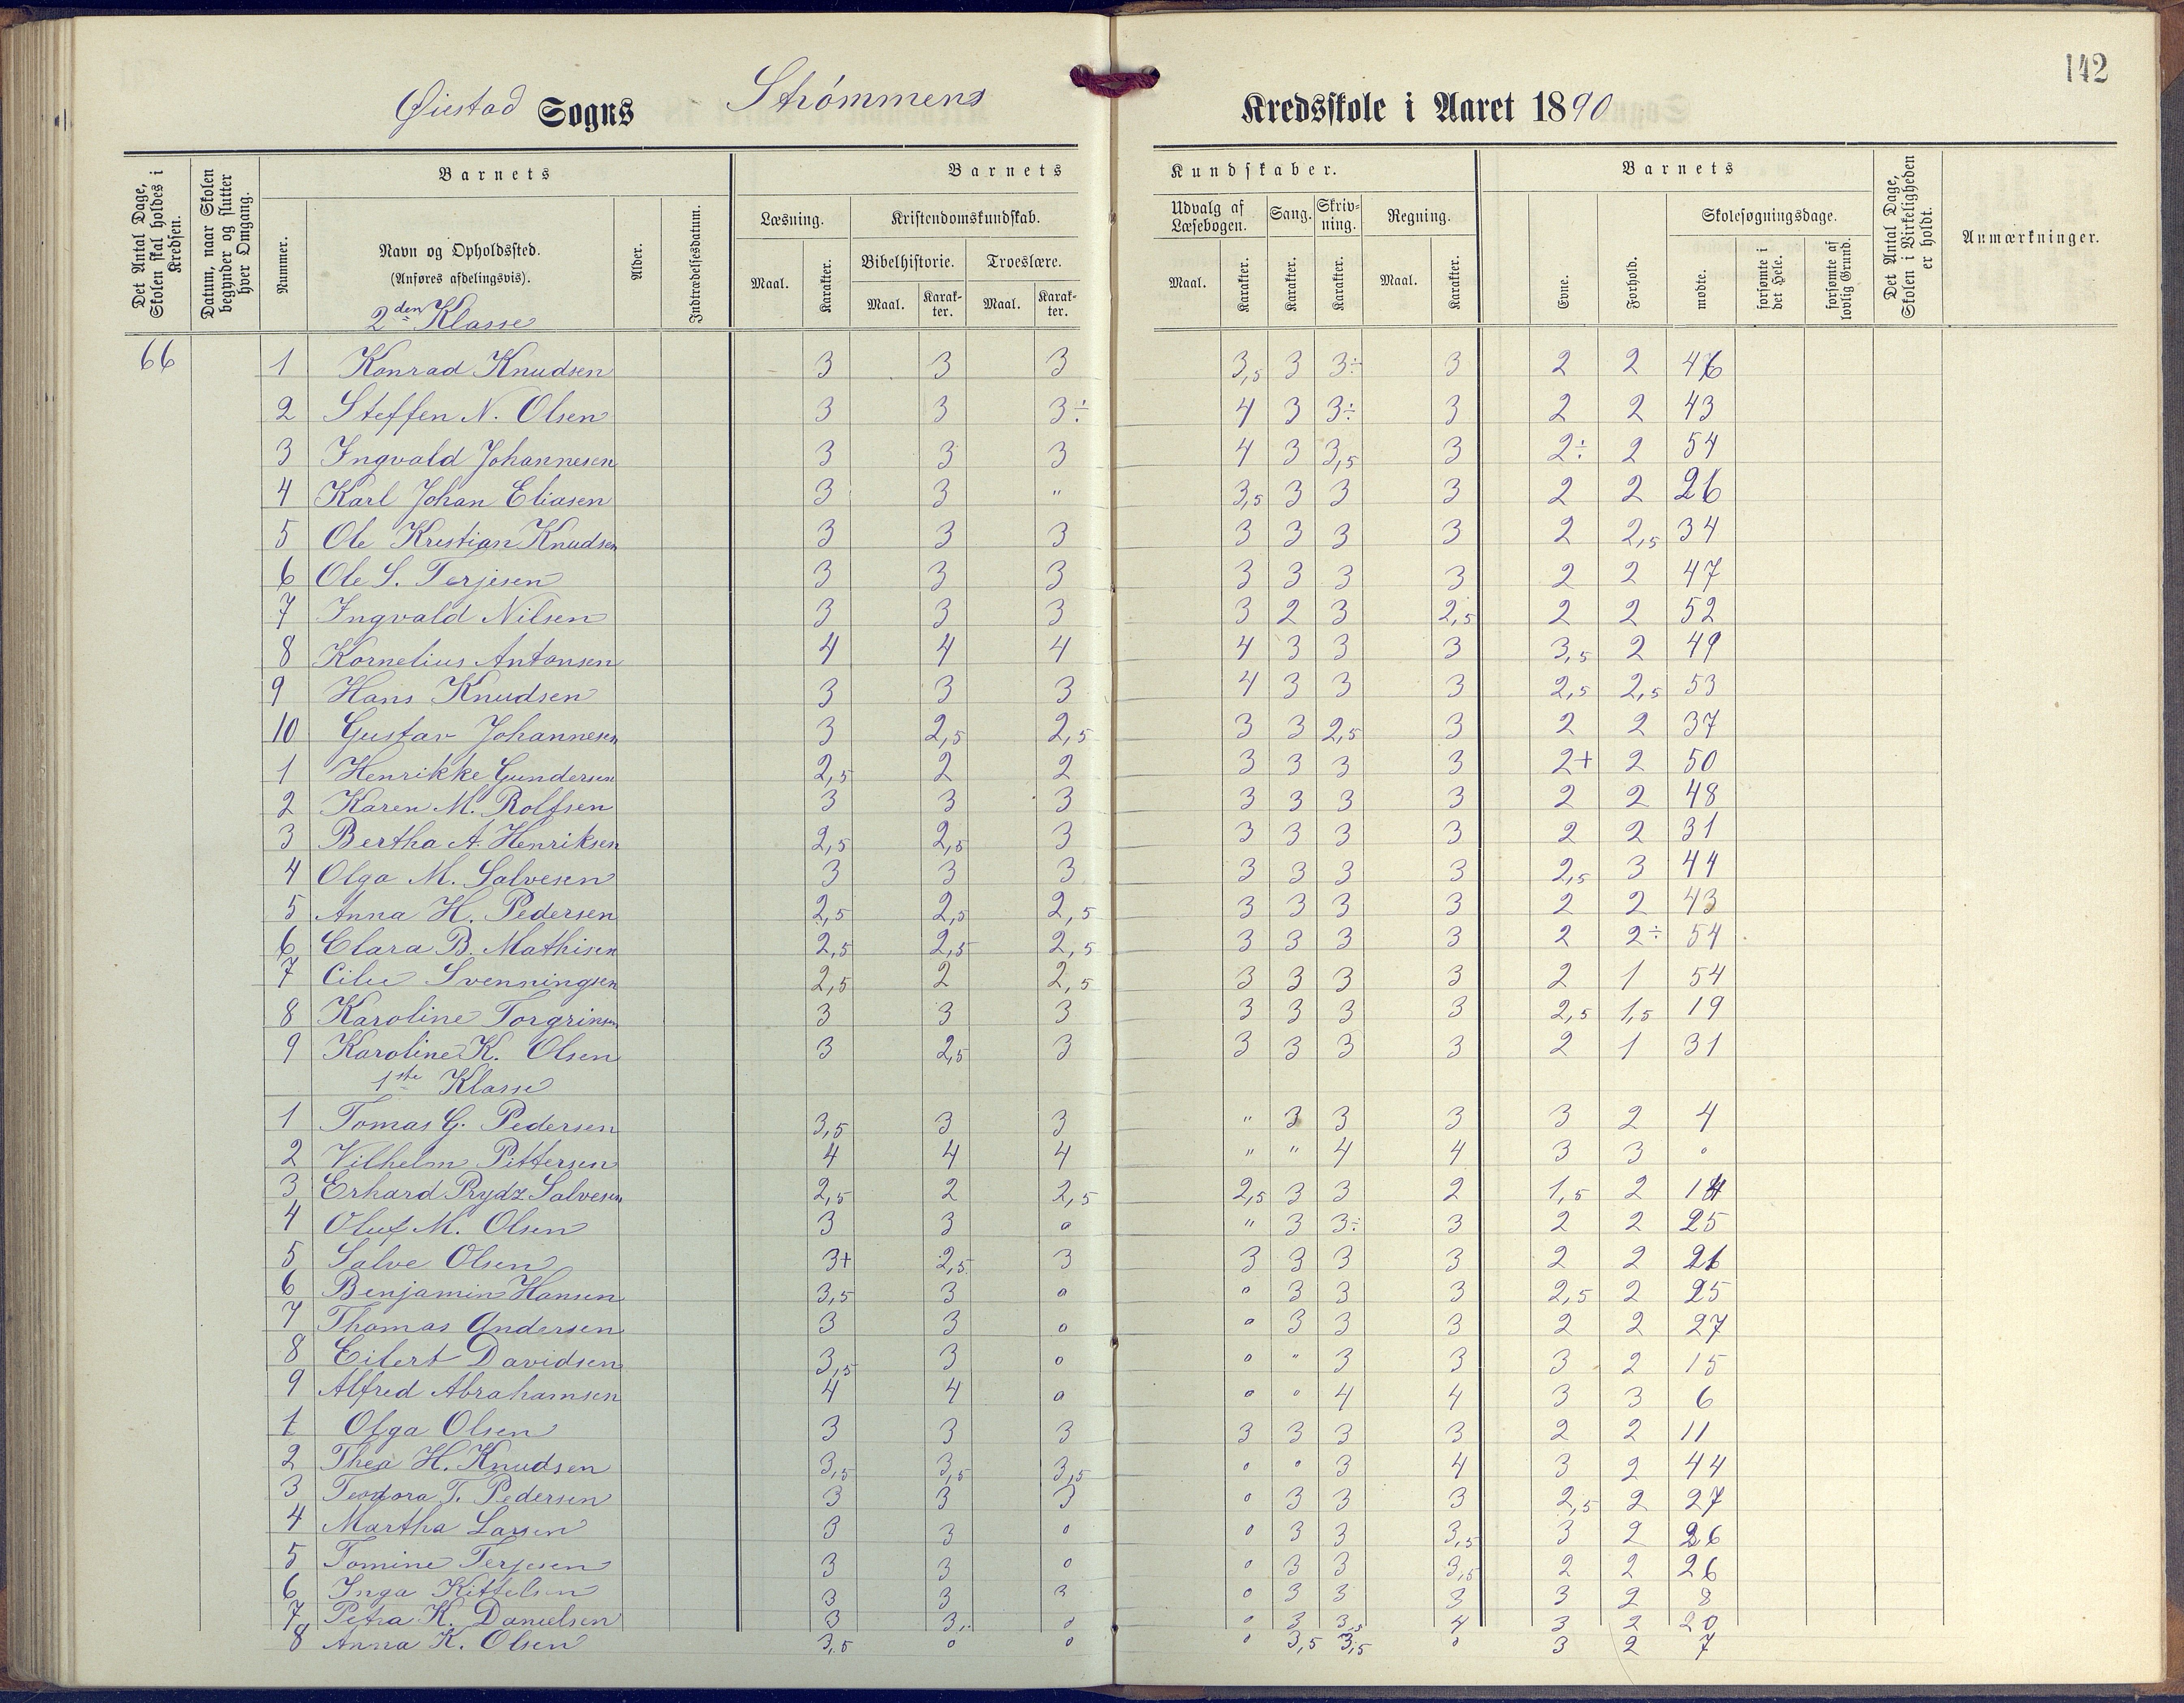 142
Øiestad Sogns Strømmens Kredsskole i Aaret 1890
Det Antal Dage, Skolen skal holdes i Kredsen.
Datum, naar Skolen begynder og slutter hver Omgang.
Barnets
Nummer.
Navn og Opholdssted.
(Anføres afdelingsvis).
Alder.
Indtrædelsesdatum.
Barnets Kundskaber.
Læsning. Kristendomskundskab. Udvalg af Læsebogen. Sang. Skrivning. Regning.
Bibelhistorie. Troeslære.
Maal. Karakter. Maal. Karakter. Maal. Karakter. Maal. Karakter. Karakter. Karakter. Maal. Karakter.
Barnets
Evne. Forhold. Skolesøgningsdage.
mødte. forsømte i det Hele. forsømte af lovlig Grund.
Det Antal Dage, Skolen i Virkeligheden er holdt.
Anmærkninger.
2den Klasse
66 1 Konrad Knudsen 3 3 3 3,5 3 3÷ 3 2 2 46
2 Steffen N. Olsen 3 3 3÷ 4 3 3÷ 3 2 2 43
3 Ingvald Johannesen 3 3 3 4 3 3,5 3 2÷ 2 54
4 Karl Johan Eliasen 3 3 " 3,5 3 3 3 2 2 26
5 Ole Kristian Knudsen 3 3 3 3 3 3 3 2 2,5 34
6 Ole S. Terjesen 3 3 3 3 3 3 3 2 2 47
7 Ingvald Nilsen 3 3 3 3 2 3 2,5 2 2 52
8 Kornelius Antonsen 4 4 4 4 3 3 3 3,5 2 49
9 Hans Knudsen 3 3 3 4 3 3 3 2,5 2,5 53
10 Gustav Johannesen 3 2,5 2,5 3 3 2,5 3 2 2 37
1 Henrikke Gundersen 2,5 2 2 3 3 3 3 2+ 2 50
2 Karen M. Rolfsen 3 3 3 3 3 3 3 2 2 48
3 Bertha A. Henriksen 2,5 2,5 3 3 3 3 3 2 2 31
4 Olga M. Salvesen 3 3 3 3 3 3 3 2,5 3 44
5 Anna H. Pedersen 2,5 2,5 2,5 3 3 3 3 2 2 43
6 Clara B. Mathisen 2,5 2,5 2,5 3 3 3 3 2 2÷ 54
7 Svenningsen 2,5 2 2,5 3 3 3 3 2 1 54
8 Karoline Torgrimsen 3 3 3 3 3 3 3 2,5 1,5 19
9 Karoline K. Olsen 3 2,5 3 3 3 3 3 2 1 31
1ste Klasse
1 Tomas G. Pedersen 3,5 3 3 " 3 3 3 3 2 4
2 Vilhelm Pittersen 4 4 4 " " 4 4 3 3 0
3 Erhard Prydz Salvesen 2,5 2 2,5 2,5 3 3 2 1,5 2
4 Oluf M. Olsen 3 3 0 " 3 3÷ 3 2 2 25
5 Salve Olsen 3+ 2,5 3 3 3 3 3 2 2
6 Benjamin Hansen 3,5 3 0 0 3 3 3 2,5 2 25
7 Thomas Andersen 3 3 0 0 3 3 3 2 2 27
8 Eilert Davidsen 3,5 3 0 0 " 3 3 3 2 15
9 Alfred Abrahamsen 4 4 0 0 0 4 4 3 3 6
1 Olga Olsen 3 3 3 3 3 3 3 2 2 11
2 Thea H. Knudsen 3,5 3,5 3,5 0 0 3 4 3 2 44
3 Teodora T. Pedersen 3 3 3 0 3 3 3 2,5 2 27
4 Martha Larsen 3 3 0 0 3 3 3,5 3 2 26
5 Tomine Terjesen 3 3 0 0 3 3 3,5 2 2 26
6 Inga Kittelsen 3 3 3 0 3 3 3 3 2 8
7 Petra K. Danielsen 3 3, 0 0 3 3,5 4 3 2 20
8 Anna K. Olsen 3,5 0 0 0 3,5 3,5 0 3 2 7